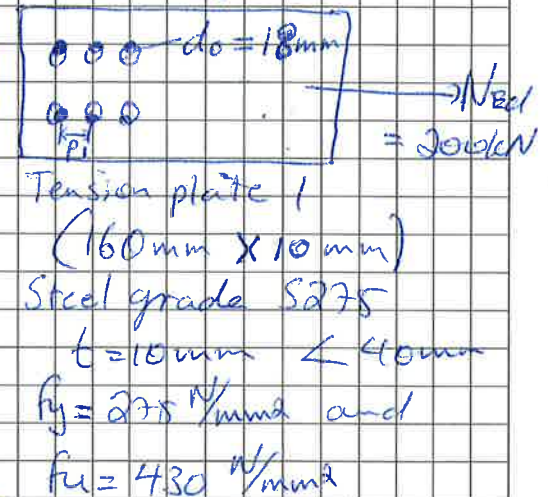 do = 18mm
NEd
= 200kN
P1
Tension plate 1
(160mm X 10mm)
Steel grade S275
t = 10mm < 40mm
fy = 275 N/mm2 and
fu = 430 N/mm2